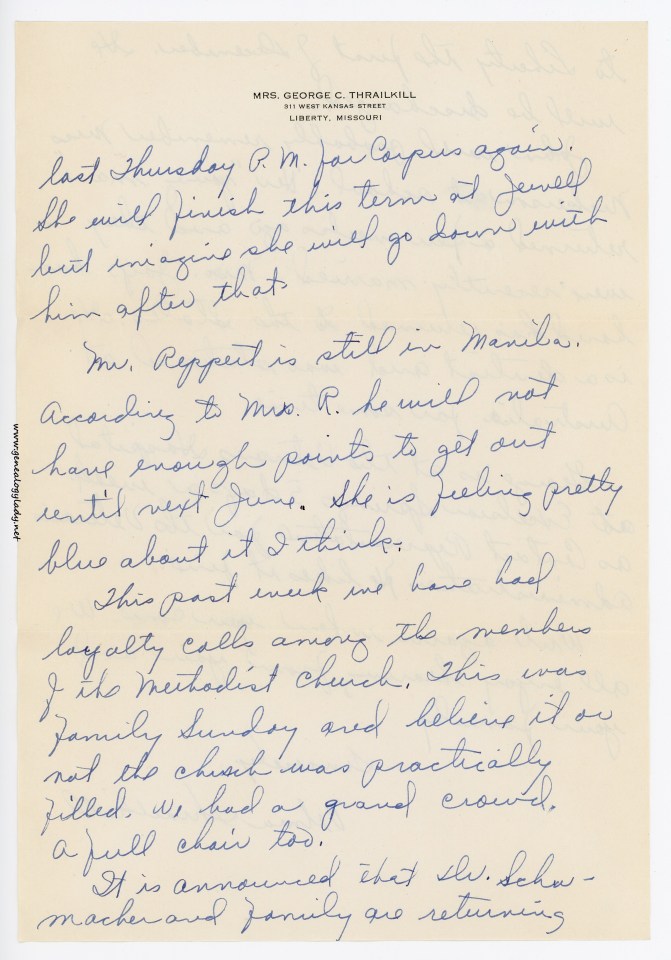 MRS. GEORGE C. THRAILKILL
311 WEST KANSAS STREET
LIBERTY, MISSOURI
last Thursday P.M. for Corpus again.
She will finish this term at Jewell
but imagine she will go down with
him after that.
Mr. Reppert is still in Manila.
According to Mrs. R. he will not
have enough points to get out
until next June. She is feeling pretty
blue about it I think.
This past week we have had
loyalty calls among the members
of the Methodist Church. This was
Family Sunday and believe it or
not the church was practically
filled. We had a grand crowd.
A full choir too.
It is announced that Dr. Schu-
macher and family are returning
www.genealogylady.net